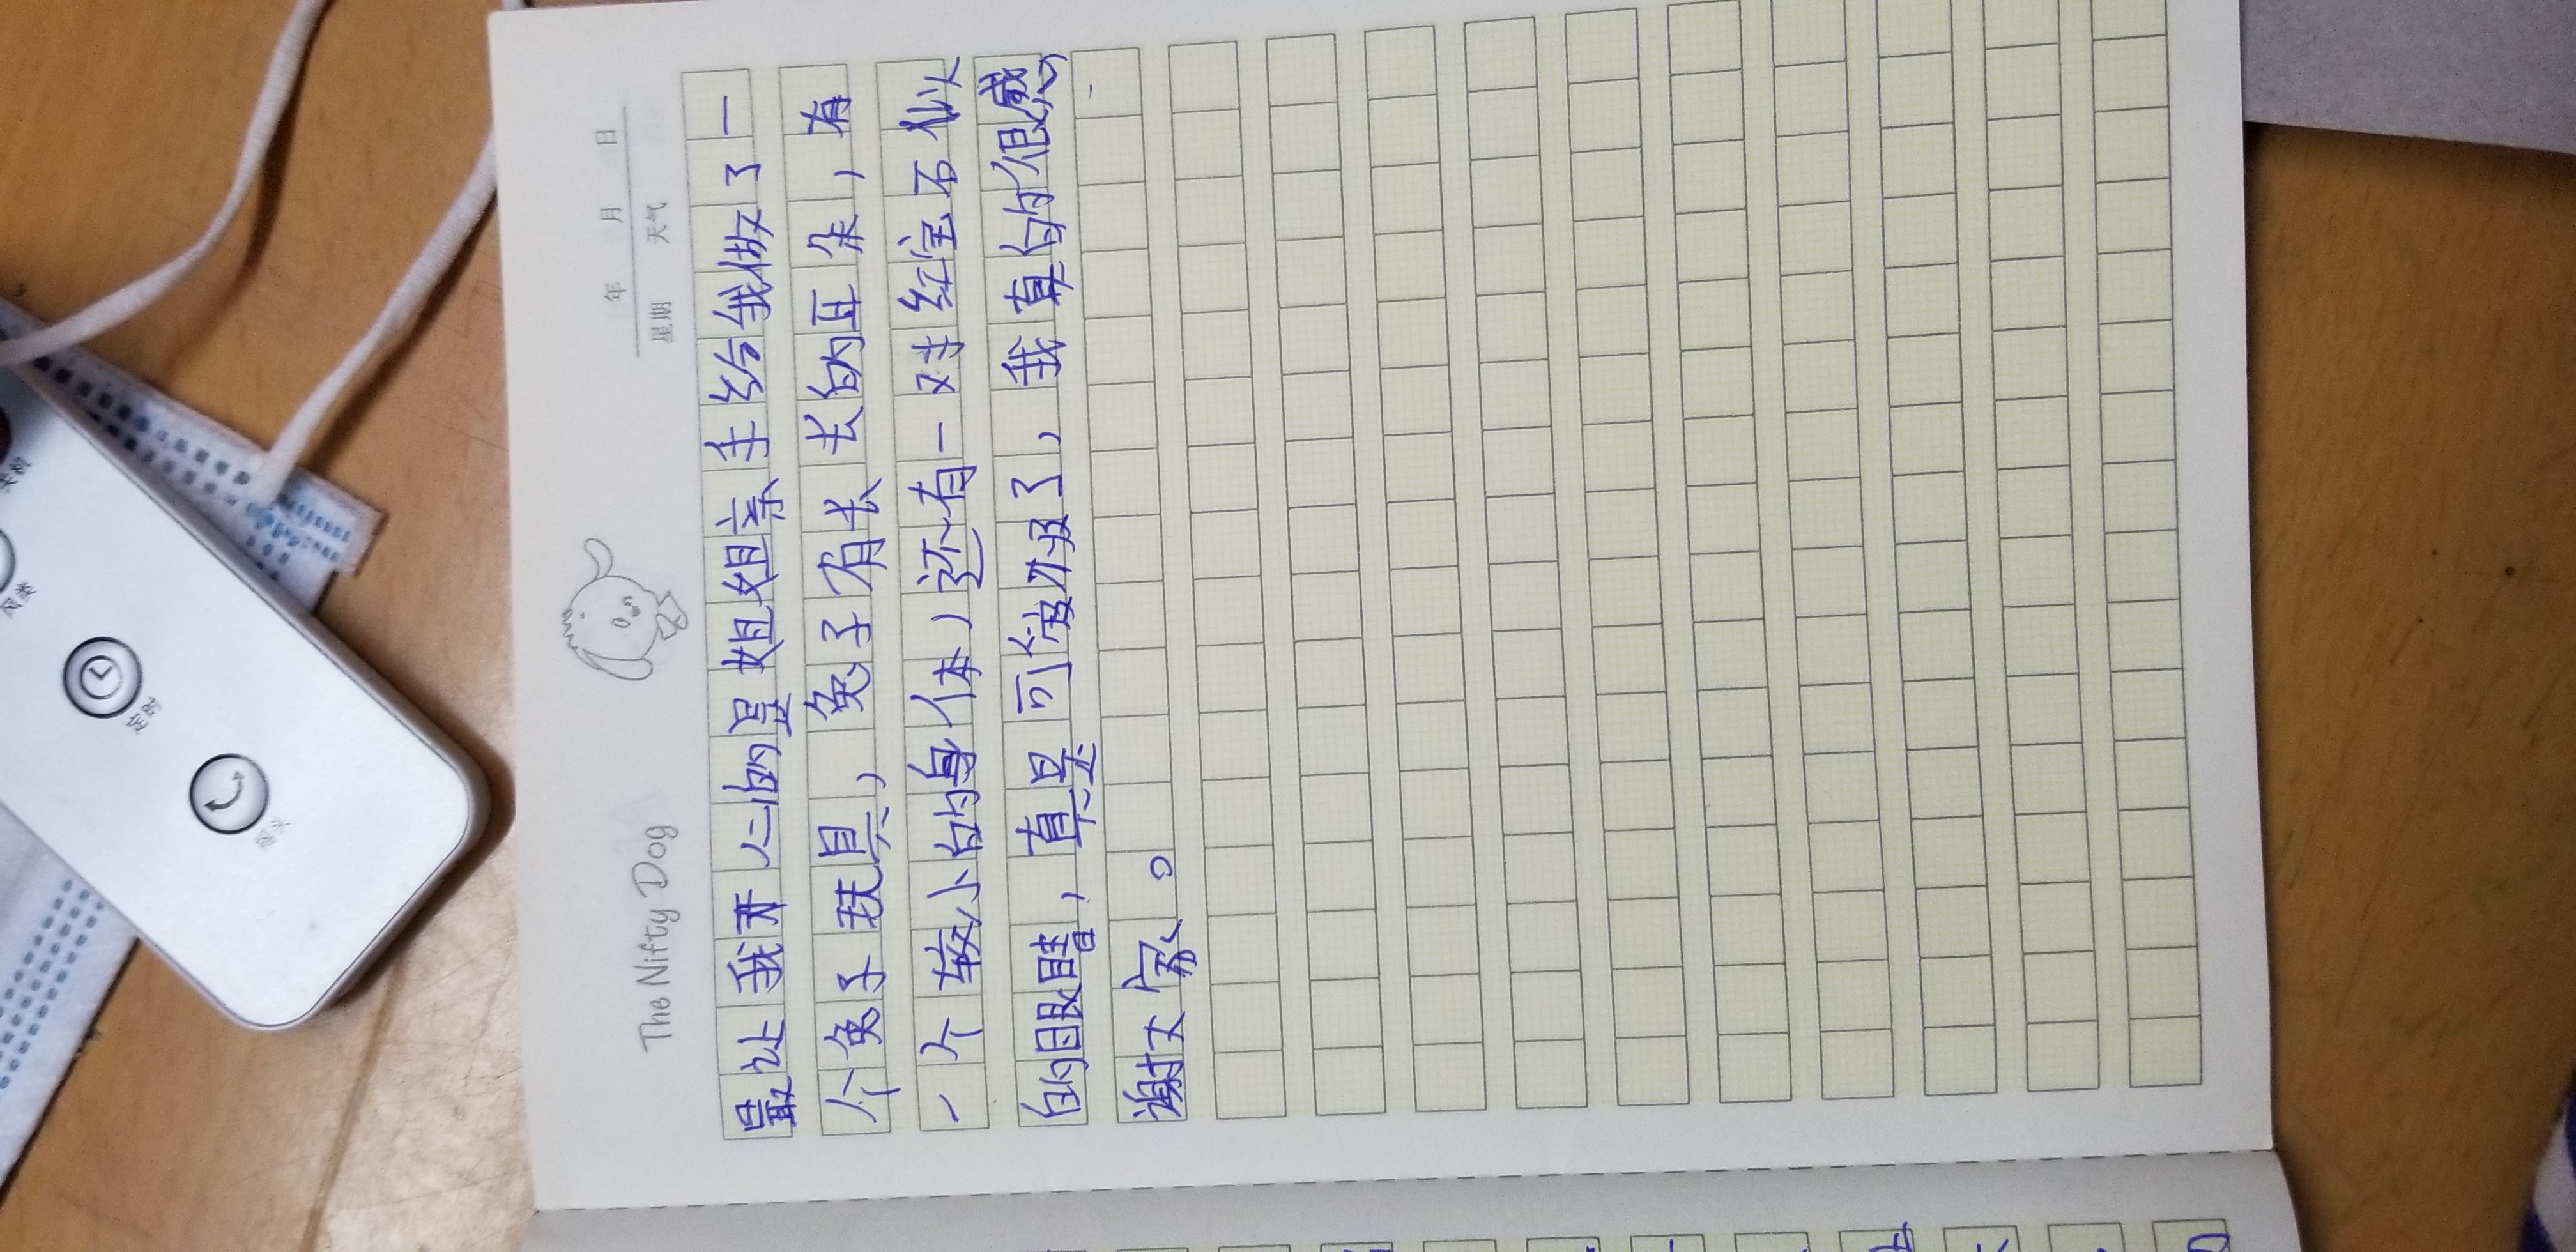 The Nifty Dog
年 月 日
星期 天气
最让我开心的是姐姐亲手给我做了一
个兔子玩具，兔子有长长的耳朵，有
一个较小的身体，还有一对红宝石似
的眼睛，真是可爱极了，我真的很感
谢大家。
定时
摇头
风类